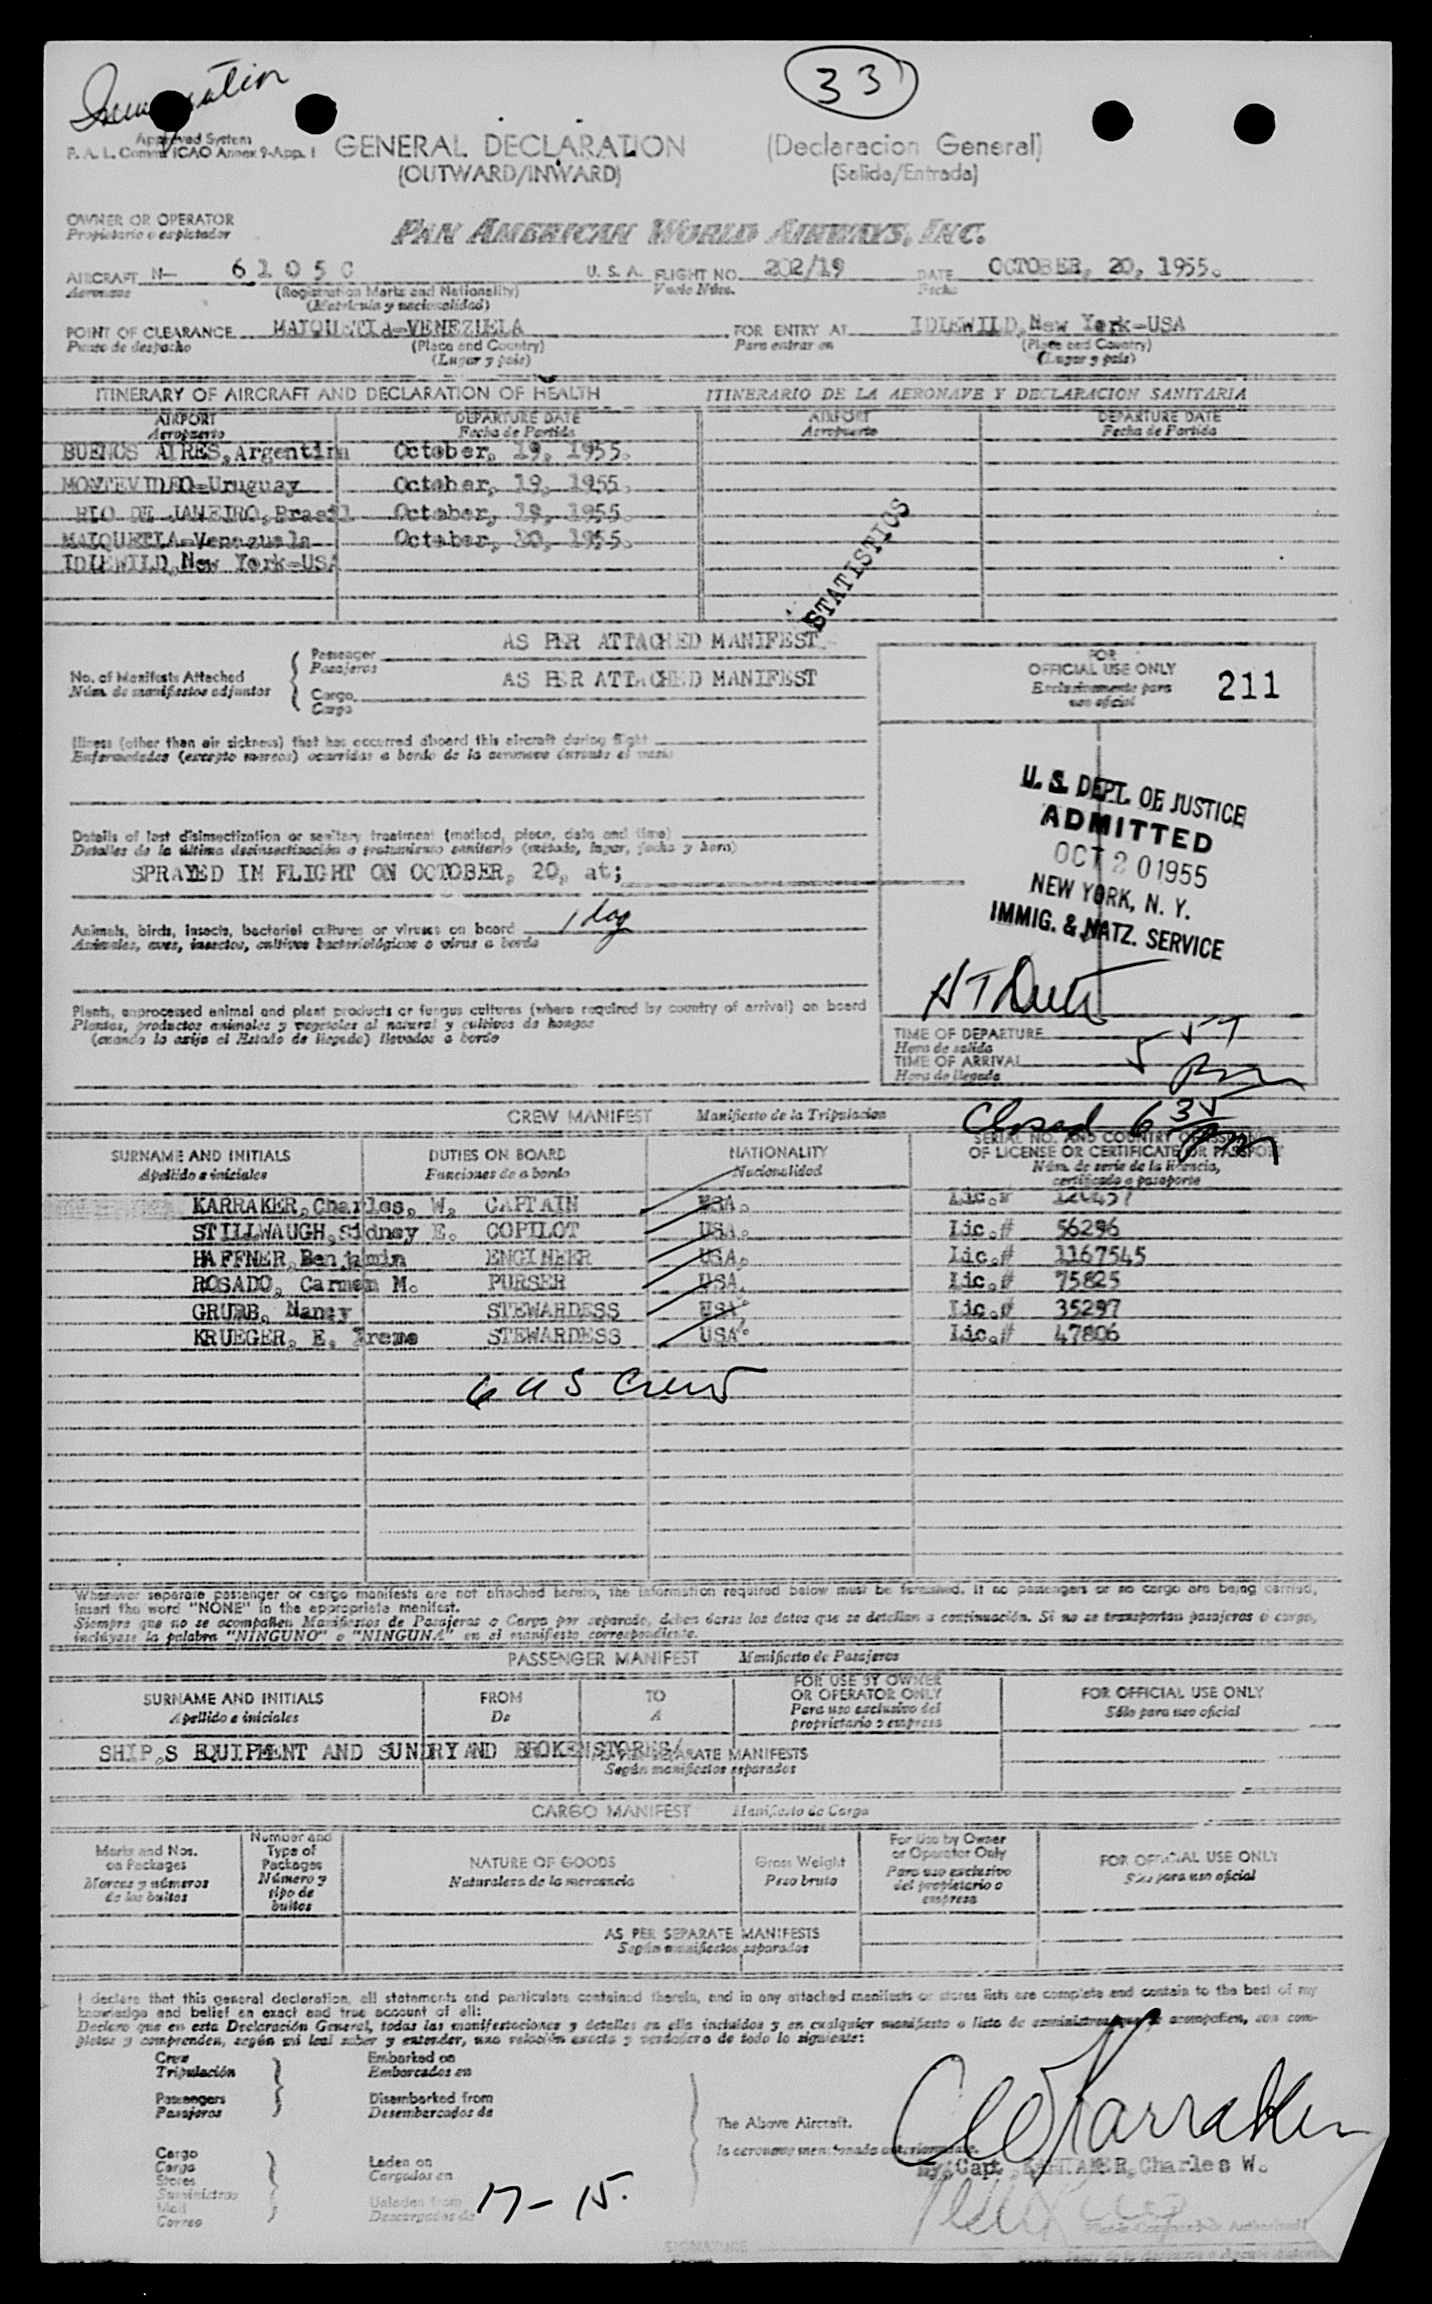 Immigration
33
Approved System
P. A. L. Comm. ICAO Annex 9-App. 1
GENERAL DECLARATION (Declaracion General)
(OUTWARD/INWARD) (Salida/Entrada)
OWNER OR OPERATOR
Propietario o explotador
PAN AMERICAN WORLD AIRWAYS, INC.
AIRCRAFT N- 6105C U. S. A. FLIGHT NO. 202/19 DATE OCTOBER, 20, 1955.
Aeronave (Registration Marks and Nationality) Vuelo Núm. Fecha
(Matrícula y nacionalidad)
POINT OF CLEARANCE MAIQUETIA-VENEZUELA FOR ENTRY AT IDLEWILD, New York-USA
Punto de despacho (Place and Country) Para entrar en (Place and Country)
(Lugar y país) (Lugar y país)
ITINERARY OF AIRCRAFT AND DECLARATION OF HEALTH ITINERARIO DE LA AERONAVE Y DECLARACION SANITARIA
AIRPORT DEPARTURE DATE AIRPORT DEPARTURE DATE
Aeropuerto Fecha de Partida Aeropuerto Fecha de Partida
BUENOS AIRES, Argentina October, 19, 1955.
MONTEVIDEO-Uruguay October, 19, 1955.
RIO DE JANEIRO, Brasil October, 19, 1955.
MAIQUETIA-Venezuela October, 20, 1955.
IDLEWILD, New York-USA
STATISTICS
No. of Manifests Attached
Núm. de manifiestos adjuntos
Passenger AS PER ATTACHED MANIFEST.
Pasajeros
Cargo AS PER ATTACHED MANIFEST
Carga
FOR
OFFICIAL USE ONLY
Exclusivamente para
uso oficial
211
Illness (other than air sickness) that has occurred aboard this aircraft during flight
Enfermedades (excepto mareos) ocurridas a bordo de la aeronave durante el vuelo
Details of last disinsectization or sanitary treatment (method, place, date and time)
Detalles de la última desinsectización o tratamiento sanitario (método, lugar, fecha y hora)
SPRAYED IN FLIGHT ON OCTOBER, 20, at;
Animals, birds, insects, bacterial cultures or viruses on board 1 dog
Animales, aves, insectos, cultivos bacteriológicos o virus a bordo
Plants, unprocessed animal and plant products or fungus cultures (where required by country of arrival) on board
Plantas, productos animales y vegetales al natural y cultivos de hongos
(cuando lo exija el Estado de llegada) llevados a bordo
U. S. DEPT. OF JUSTICE
ADMITTED
OCT 20 1955
NEW YORK, N. Y.
IMMIG. & NATZ. SERVICE
TIME OF DEPARTURE
Hora de salida
TIME OF ARRIVAL 5 57 Pm
Hora de llegada
Closed 6 35 Pm
CREW MANIFEST Manifiesto de la Tripulacion
SURNAME AND INITIALS DUTIES ON BOARD NATIONALITY SERIAL NO. AND COUNTRY OF ISSUANCE
OF LICENSE OR CERTIFICATE OR PASSPORT
Apellido e iniciales Funciones de a bordo Nacionalidad Núm. de serie de la licencia,
certificado o pasaporte
KARRAKER, Charles, W. CAPTAIN USA. Lic.# 120457
STILLWAUGH, Sidney E. COPILOT USA. Lic.# 56296
HAFFNER, Benjamin ENGINEER USA. Lic.# 1167545
ROSADO, Carmen M. PURSER USA. Lic.# 75825
GRUBB, Nancy STEWARDESS USA. Lic.# 35297
KRUEGER, E. Irene STEWARDESS USA. Lic.# 47806
6 US Crew
Whenever separate passenger or cargo manifests are not attached hereto, the information required below must be furnished. If no passengers or no cargo are being carried,
insert the word "NONE" in the appropriate manifest.
Siempre que no se acompañen Manifiestos de Pasajeros o Carga por separado, deben darse los datos que se detallan a continuación. Si no se transportan pasajeros o carga,
inclúyase la palabra "NINGUNO" o "NINGUNA" en el manifiesto correspondiente.
PASSENGER MANIFEST Manifiesto de Pasajeros
SURNAME AND INITIALS FROM TO FOR USE BY OWNER
OR OPERATOR ONLY FOR OFFICIAL USE ONLY
Apellido e iniciales De A Para uso exclusivo del
propietario o empresa Sólo para uso oficial
SHIP,S EQUIPMENT AND SUNDRY AND BROKEN STORES/ SEPARATE MANIFESTS
Según manifiestos separados
CARGO MANIFEST Manifiesto de Carga
Marks and Nos.
on Packages
Marcas y números
de los bultos
Number and
Type of
Packages
Número y
tipo de
bultos
NATURE OF GOODS
Naturaleza de la mercancía
Gross Weight
Peso bruto
For Use by Owner
or Operator Only
Para uso exclusivo
del propietario o
empresa
FOR OFFICIAL USE ONLY
Sólo para uso oficial
AS PER SEPARATE MANIFESTS
Según manifiestos separados
I declare that this general declaration, all statements and particulars contained therein, and in any attached manifests or stores lists are complete and contain to the best of my
knowledge and belief an exact and true account of all:
Declaro que en esta Declaración General, todas las manifestaciones y detalles en ella incluidos y en cualquier manifiesto o lista de suministros que le acompañen, son com-
pletos y comprenden, según mi leal saber y entender, una relación exacta y verdadera de todo lo siguiente:
Crew Embarked on
Tripulación Embarcados en
Passengers Disembarked from
Pasajeros Desembarcados de
The Above Aircraft.
la aeronave mencionada anteriormente.
Cargo Laden on
Carga Cargados en
Stores
Suministros
Mail Unladen from
Correo Descargados de
17-15.
CW Karraker
By, Capt. KARRAKER, Charles W.
SIGNATURE